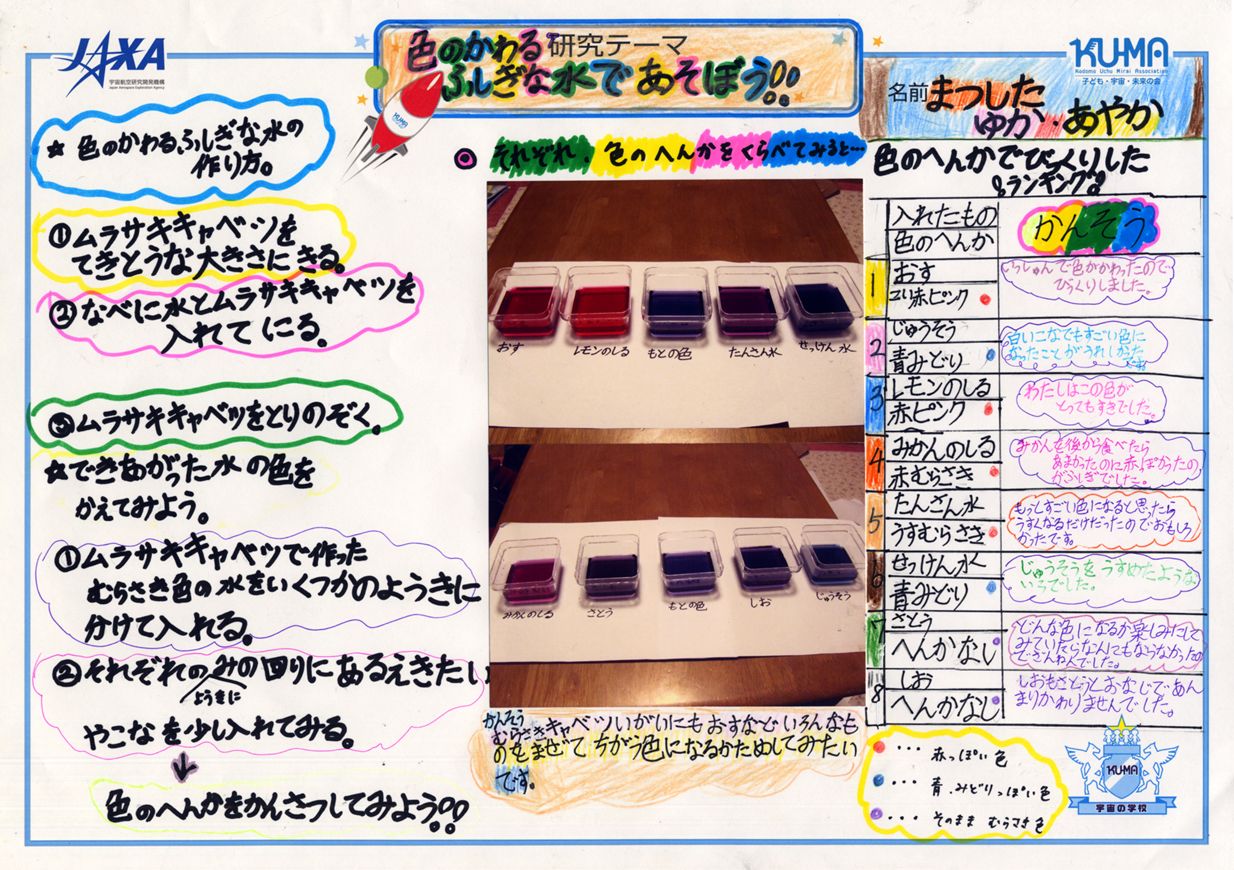 JAXA
宇宙航空研究開発機構
Japan Aerospace Exploration Agency
研究テーマ
色のかわる
ふしぎな水であそぼう!!
KUMA
KUMA
Kodomo Uchu Mirai Association
子ども・宇宙・未来の会
名前 まつした
ゆか・あやか
☆色のかわるふしぎな水の
作り方。
①ムラサキキャベツを
てきとうな大きさにきる。
②なべに水とムラサキキャベツを
入れてにる。
③ムラサキキャベツをとりのぞく。
☆できあがった水の色を
かえてみよう。
①ムラサキキャベツで作った
むらさき色の水をいくつかのようきに
分けて入れる。
②それぞれのみの回りにあるえきたい
ようきに
やこなを少し入れてみる。
↓
色のへんかをかんさつしてみよう!!
◎それぞれ、色のへんかをくらべてみると…
おす
レモンのしる
もとの色
たんさん水
せっけん水
みかんのしる
さとう
もとの色
しお
じゅうそう
かんそう
むらさきキャベツいがいにもおすなどいろんなも
のをまぜてちがう色になるかためしてみたい
です。
色のへんかでびっくりした
ランキング
入れたもの
色のへんか
かんそう
1
おす
こい赤ピンク
いっしゅんで色がかわったので
びっくりしました。
2
じゅうそう
青みどり
白いこなでもすごい色に
なったことがうれしかった
です
3
レモンのしる
赤ピンク
わたしはこの色が
とってもすきでした。
4
みかんのしる
赤むらさき
みかんを後から食べたら
あまかったのに赤っぽかったの
がふしぎでした。
5
たんさん水
うすむらさき
もっとすごい色になると思ったら
うすくなるだけだったのでおもしろ
かったです。
6
せっけん水
青みどり
じゅうそうをうすめたような
いろでした。
7
さとう
へんかなし
どんな色になるか楽しみにして
みていたらなんにもならなかったの
でざんねんでした。
8
しお
へんかなし
しおもさとうとおなじであん
まりかわりませんでした。
… 赤っぽい色
… 青、みどりっぽい色
… そのまま むらさき色
KUMA
宇宙の学校